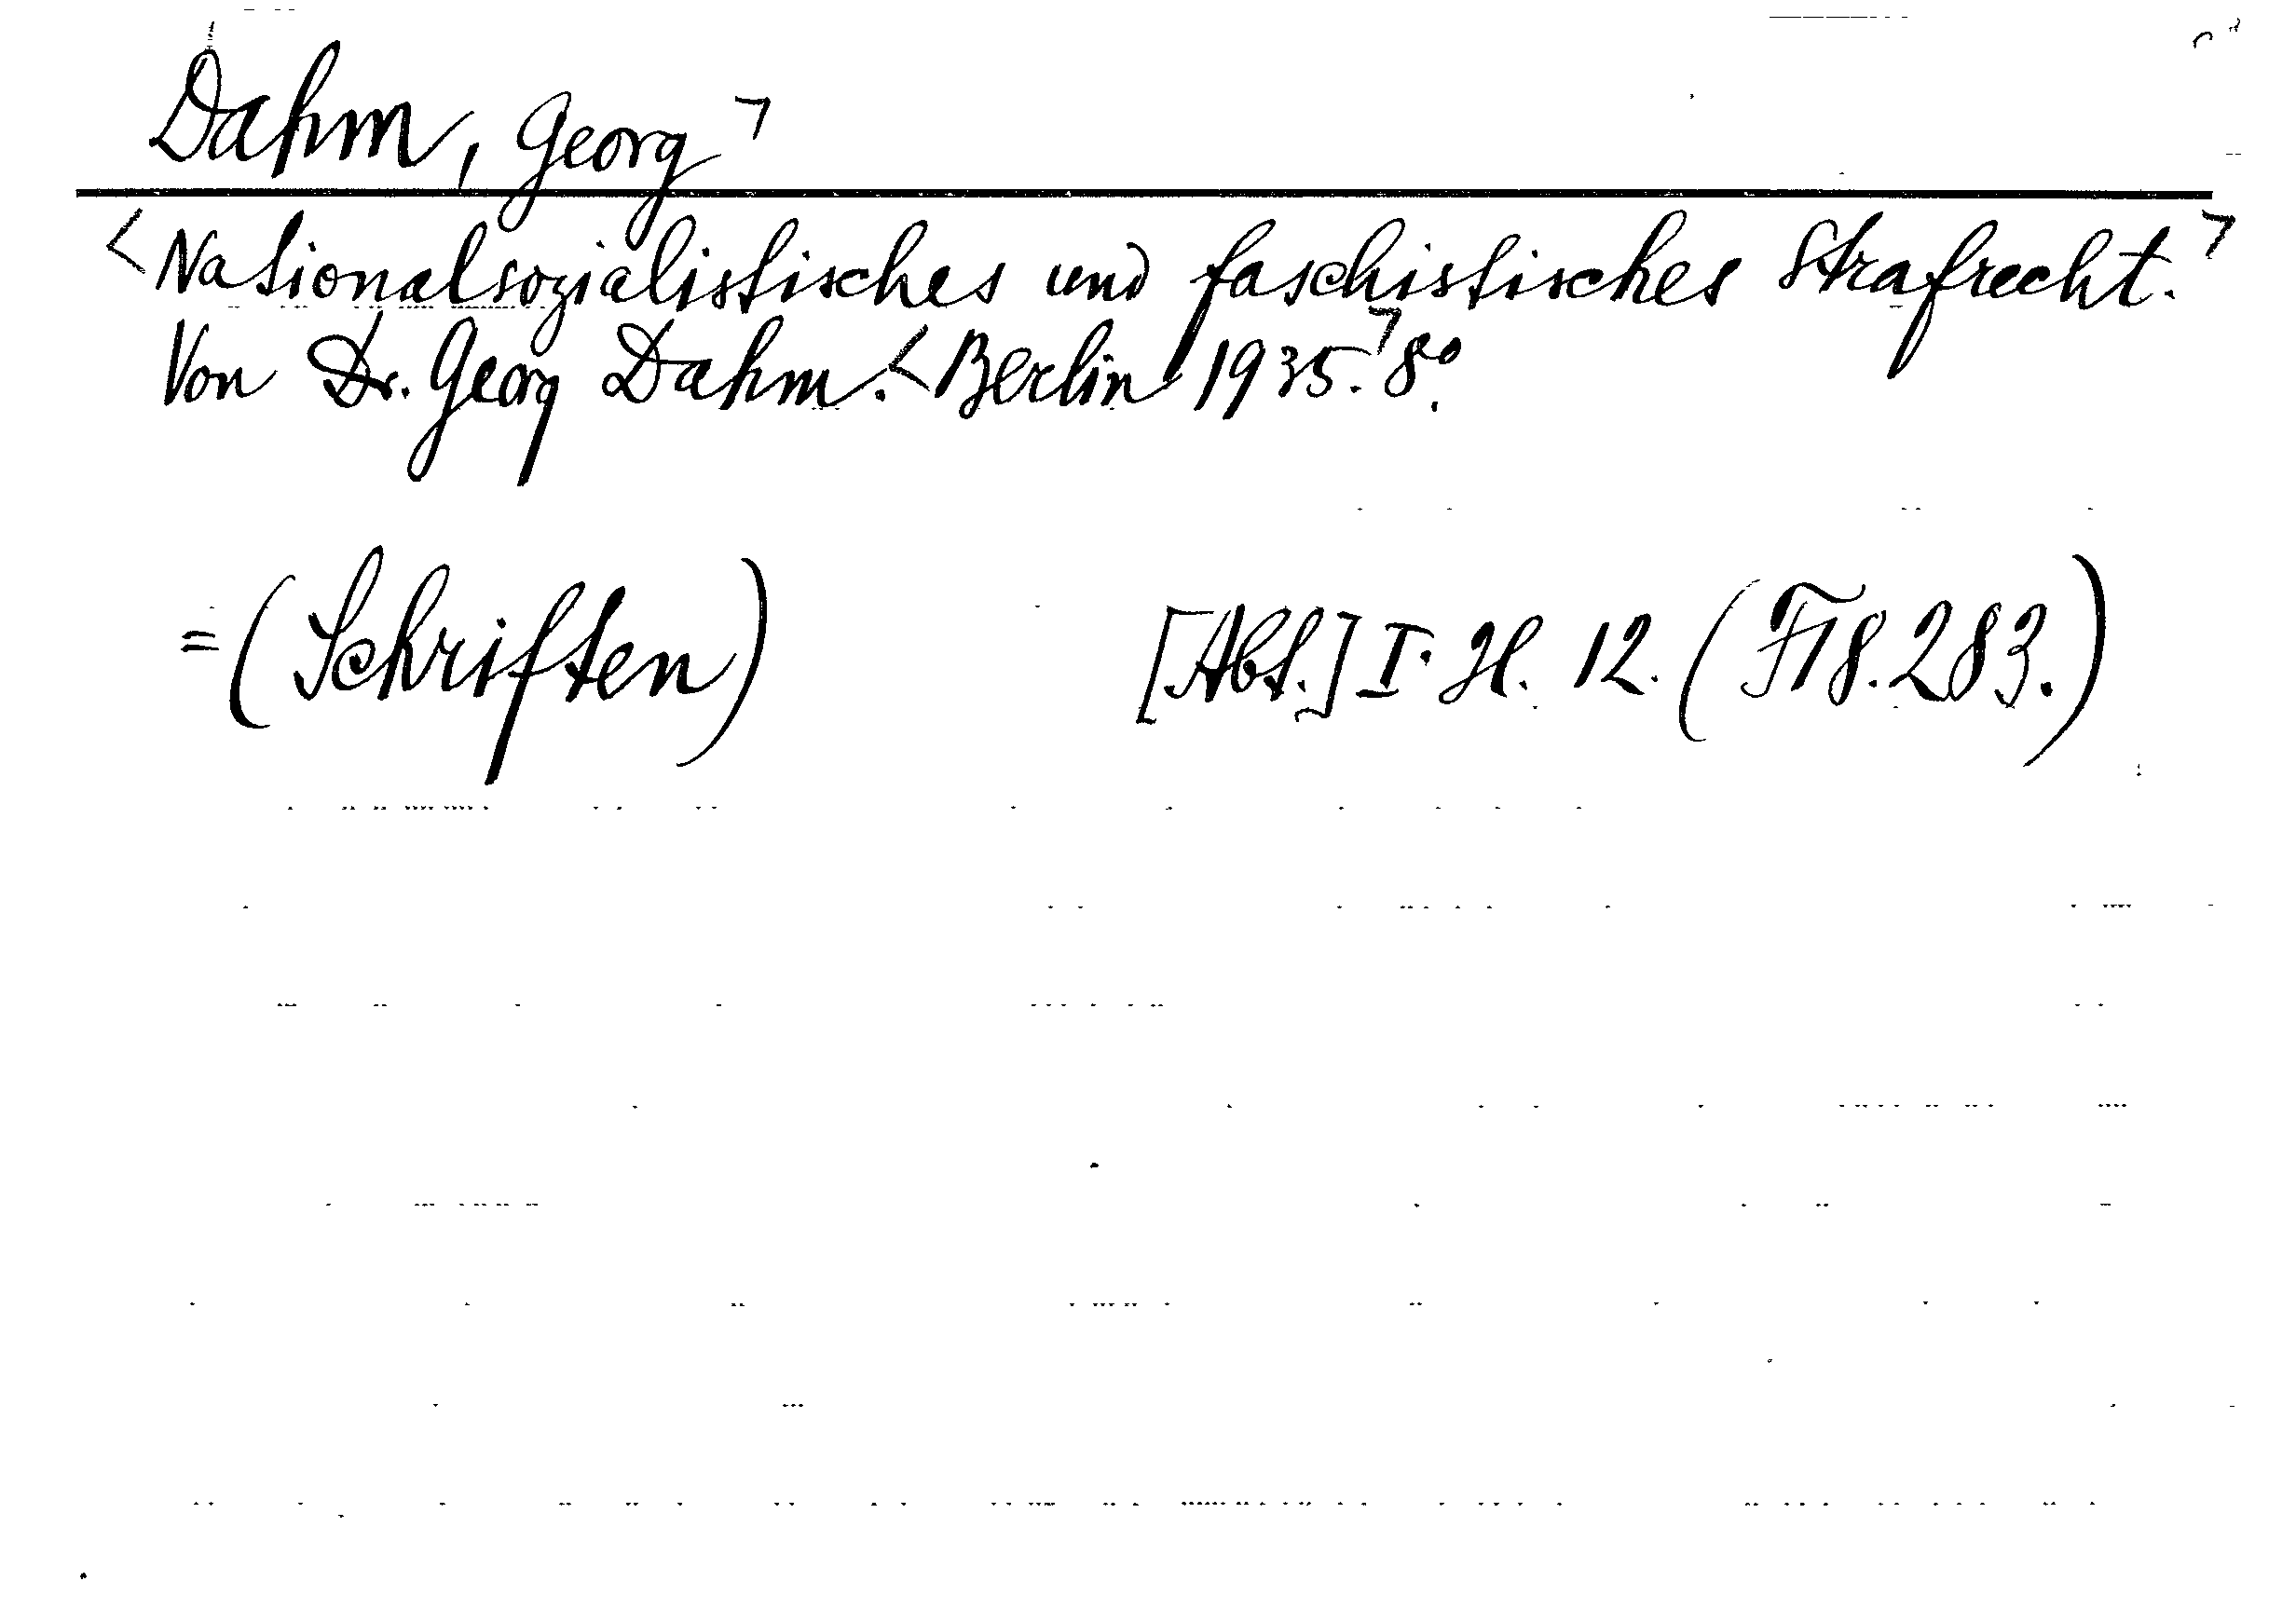 Dahm, Georg⁊
<Nationalsozialistisches und faschistisches Strafrecht.⁊
Von Dr. Georg Dahm.<Berlin 1935.⁊ 8º.
=(Schriften) [Abt.] I. H. 12. (F18.283.)